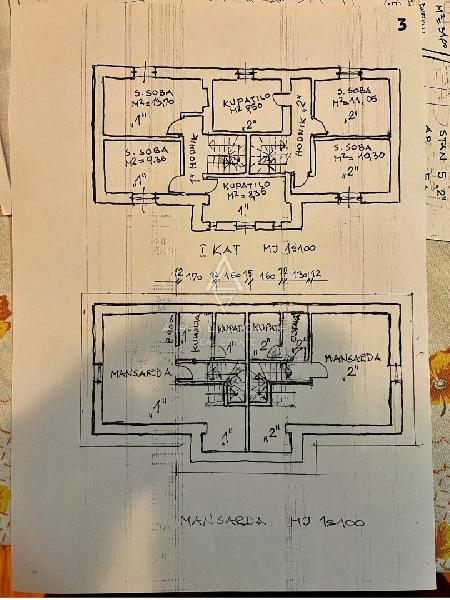 3
S. SOBA
M²=13,70
"1"
KUPATILO
M²
"2"
HODNIK "2"
S. SOBA
M²=11,05
"2"
S. SOBA
M²=9.36
"1"
HODNIK
"1"
KUPATILO
M²=8,36
"1"
S. SOBA
M²=10,30
"2"
I KAT MJ 1:100
12 170 12 160 15 160 12 130 12
KUHINJA
KUPAT.
"1"
KUPAT.
"2"
MANSARDA
"1"
MANSARDA
"2"
"1"
"2"
MANSARDA MJ 1:100
STAN 5
"2"